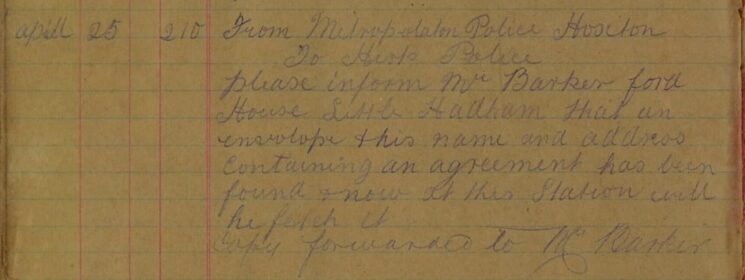 april 25 210 From Metropolaton Police Hoxton
To Herts Police
please inform Mr Barker ford
House Little Hadham that an
envolope & this name and address
Containing an agreement has been
found & now at this Station will
he fetch it
Copy forwarded to Mr Barker